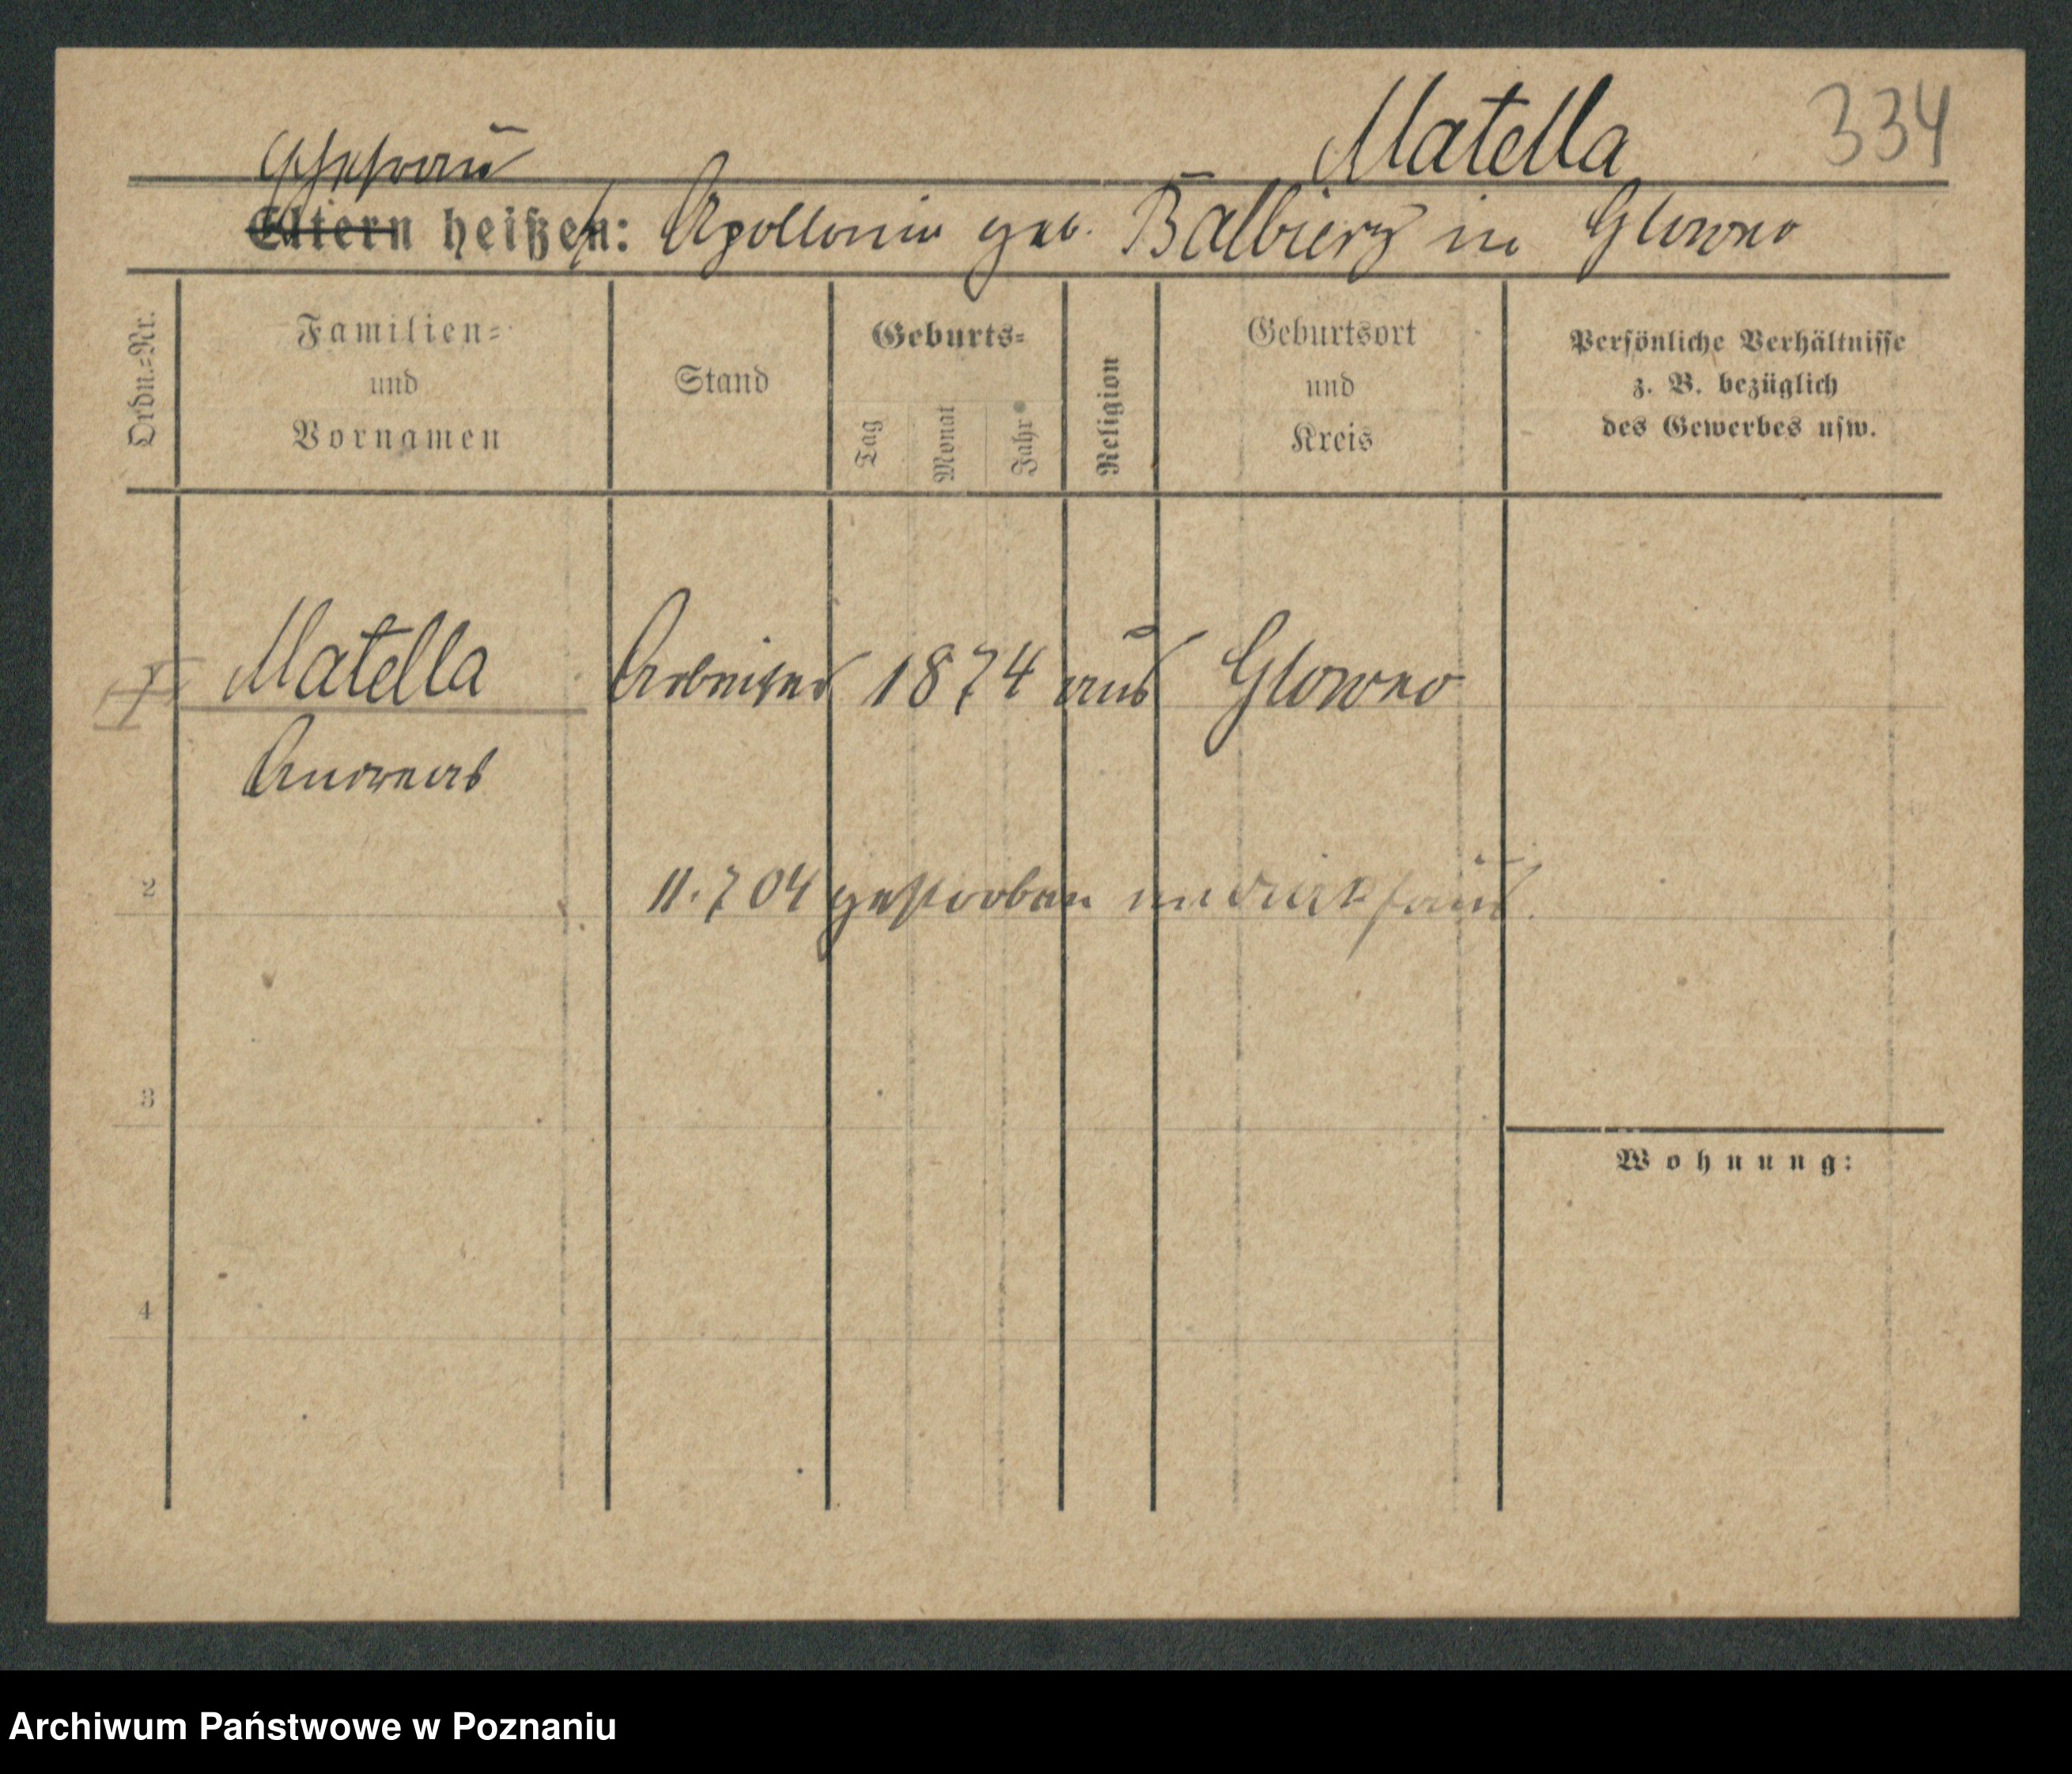 Matella 334
Ehefrau
Eltern heißen: Apollonia geb. Balbierz in Glowno
Ordn.=Nr.
Familien=
und
Vornamen
Stand
Geburts=
Tag
Monat
Jahr
Religion
Geburtsort
und
Kreis
Persönliche Verhältnisse
z. B. bezüglich
des Gewerbes usw.
Matella Arbeiter 1874 aus Glowno
Andreas
2
11.7 04 gestorben im
3
Wohnung:
4
Archiwum Państwowe w Poznaniu